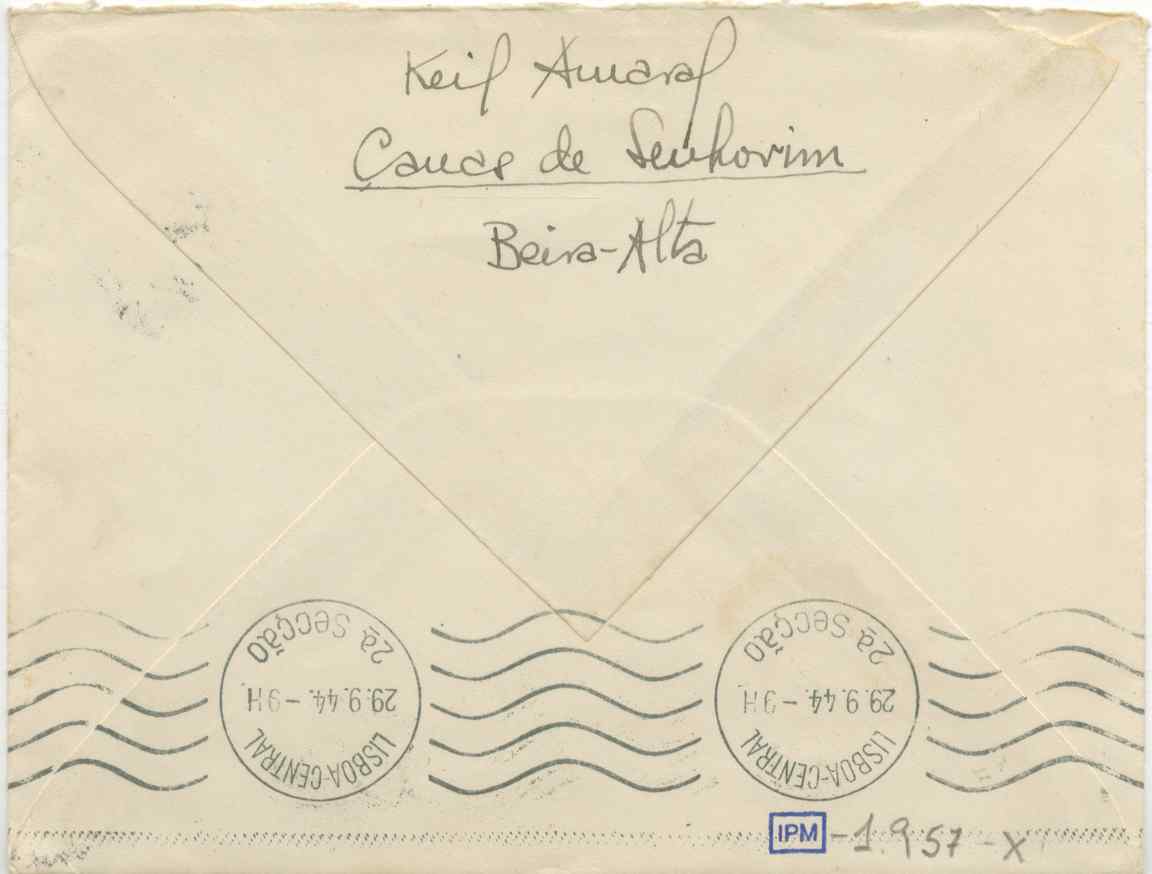 Keil Amaral
Canas de Senhorim
Beira-Alta
2ª Secção
29.9.44.-9H
LISBOA-CENTRAL
2ª Secção
29.9.44.-9H
LISBOA-CENTRAL
IPM -1.957-X